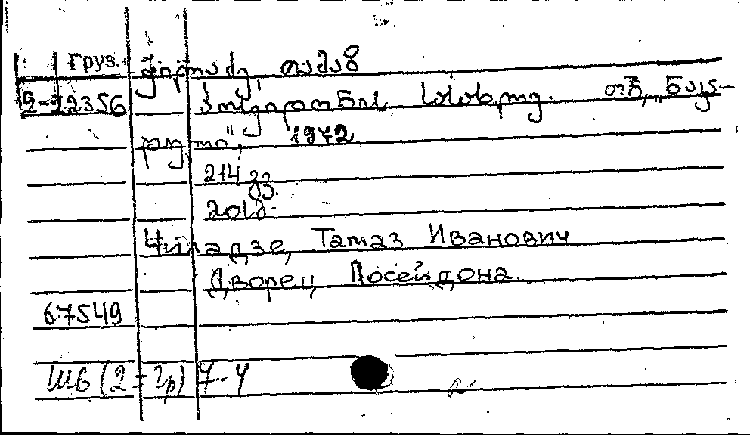 Груз. ჭილაძე, თამაზ
2-22356 პოსეიდონის სასახლე. თბ, „ნაკა-
დული", 1972
214 გვ.
20სმ.
Чиладзе, Тамаз Иванович
Дворец Посейдона.
67549
Ш6 (2=Гр) 7-4